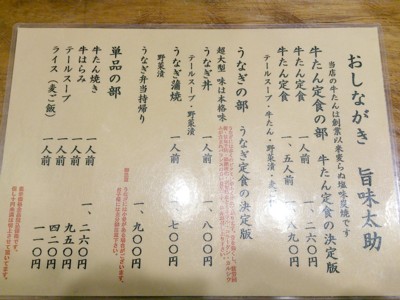 おしながき　旨味太助
当店の牛たんは創業以来変らぬ塩味炭焼です
牛たん定食の部　牛たん定食の決定版
牛たん定食　一人前　一、二六〇円
牛たん定食　一、五人前
テールスープ・牛たん・野菜漬・麦めし
うなぎの部　うなぎ定食の決定版
超大型 味は本格味
うなぎ丼　一人前　一、八〇〇円
テールスープ・野菜漬
うなぎ蒲焼　一人前　一、七〇〇円
野菜漬
うなぎ弁当持帰り　一、九〇〇円
単品の部
牛たん焼き　一人前　一、二六〇円
牛はらみ　一人前　九五〇円
テールスープ　一人前　四二〇円
ライス（麦ご飯）　一人前　一一〇円